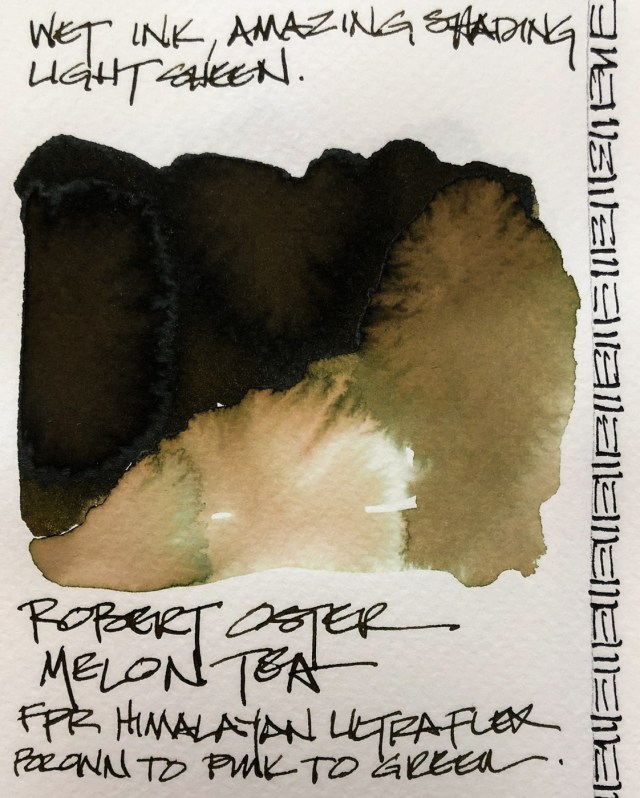 WET INK, AMAZING SHADING
LIGHT SHEEN.
ROBERT OSTER
MELON TEA
FPR HIMALAYAN ULTRAFLEX
BROWN TO PINK TO GREEN.